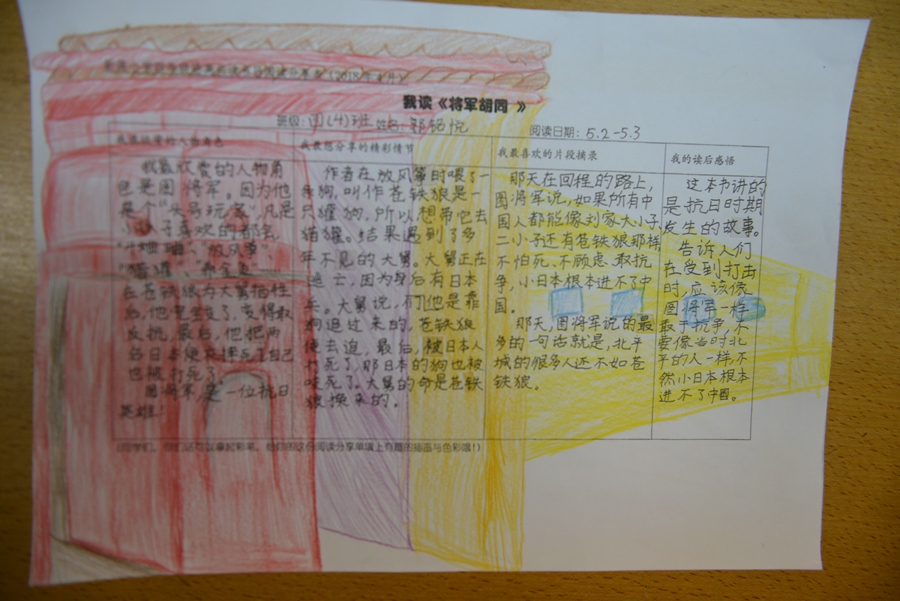 我读《将军胡同 》
班级:四(4)班 姓名:
阅读日期: 5.2-5.3
我最欣赏的人物角色
我最欣赏的人物角
色是图将军。因为他
是个“头号玩家”,凡是
小孩子喜欢的都会,
放风筝、
在苍铁狼为大舅牺牲
后,他 变了,变得敢
反抗,最后,他把两
名日本 自己
也被打死了。
图将军,是一位抗日
英雄!
我最想分享的精彩情节
作者在放风筝时喂了一
条狗,叫作苍铁狼是一
只獾狗,所以想带它去
猫獾。结果遇到了多
年不见的大舅。大舅正在
逃亡,因为身后有日本
兵。大舅说,有 他是靠
狗追过来的,苍铁狼
便去追,最后,被日本人
打死了,那日本的狗也被
咬死了。大舅的命是苍铁
狼换来的。
我最喜欢的片段摘录
那天在回程的路上,
图将军说,如果所有中
国人都能像刘家大小子
二小子还有苍铁狼那样
不怕死、不顾走、敢抗
争,小日本根本进不了中
国。
那天,图将军说的最
多的一句话就是,北平
城的很多人还不如苍
铁狼。
我的读后感悟
这本书讲的
是抗日时期
发生的故事。
告诉人们
在受到打击
时,应该像
图将军一样
敢于抗争,不
要像当时北
平的人一样,不
然小日本根本
进不了中国。
(同学们,你们还可以拿起彩笔,给你的这份阅读分享单填上有趣的插画与色彩哦!)